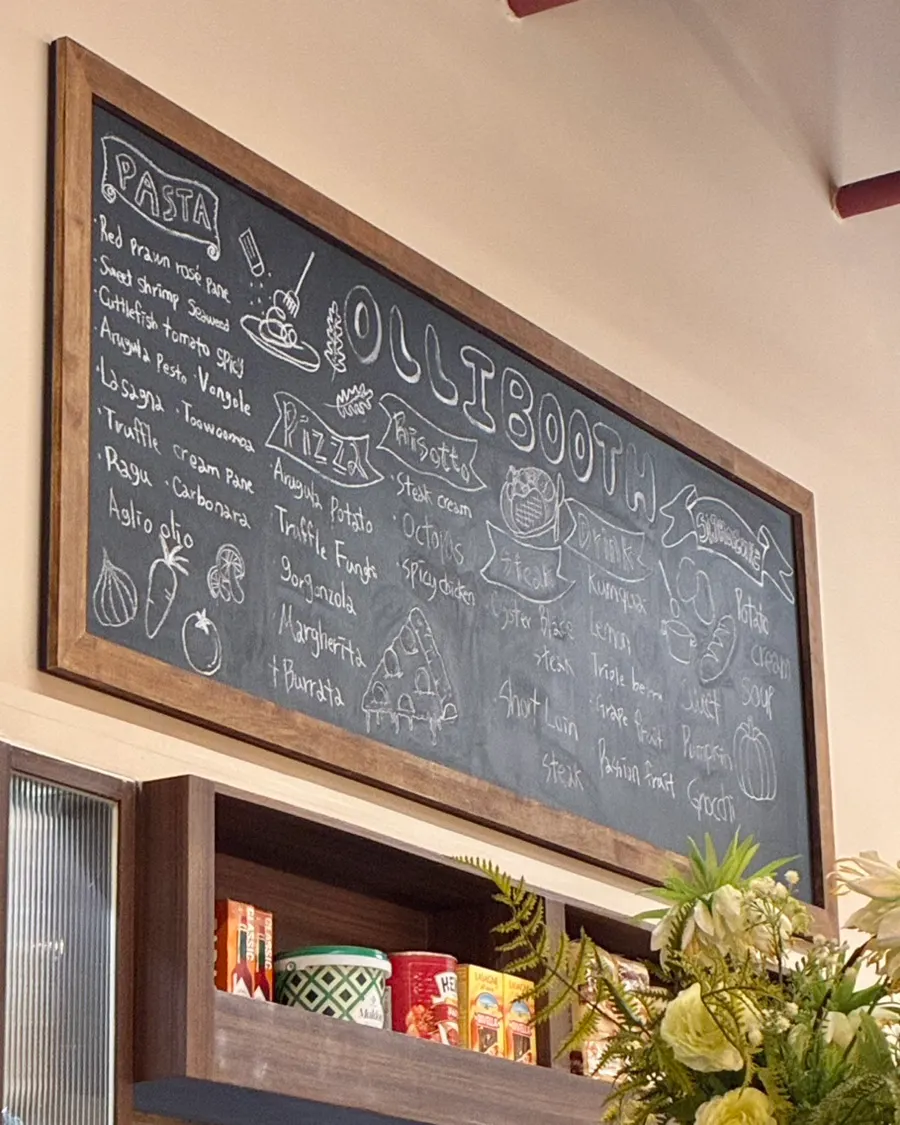 PASTA
· Red prawn rosé pane
· Sweet shrimp Seaweed
· Cuttlefish tomato spicy
· Arugula Pesto · Vongole
· Lasagna · Toowoomba
· Truffle cream pane
· Ragu · Carbonara
Aglio olio
OLLIBOOTH
Pizza
· Arugula Potato
Truffle Fungi
gorgonzola
Margherita
+Burrata
Risotto
· Steak cream
Octopus
· spicy chicken
Steak
Oyster blade
steak
Short Loin
steak
Drink
kumquat
Lemon
Triple berry
· Grape fruit
Passion fruit
Potato
cream
soup
Sweet
Pumpkin
Gnocchi
CLASSIC
Maldon
HEINZ
LIMONE